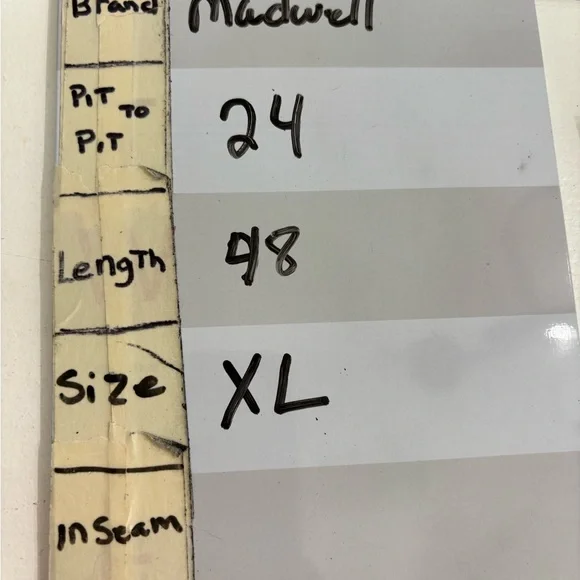 Brand Madwell
PiT TO PiT 24
Length 48
Size XL
InSeam